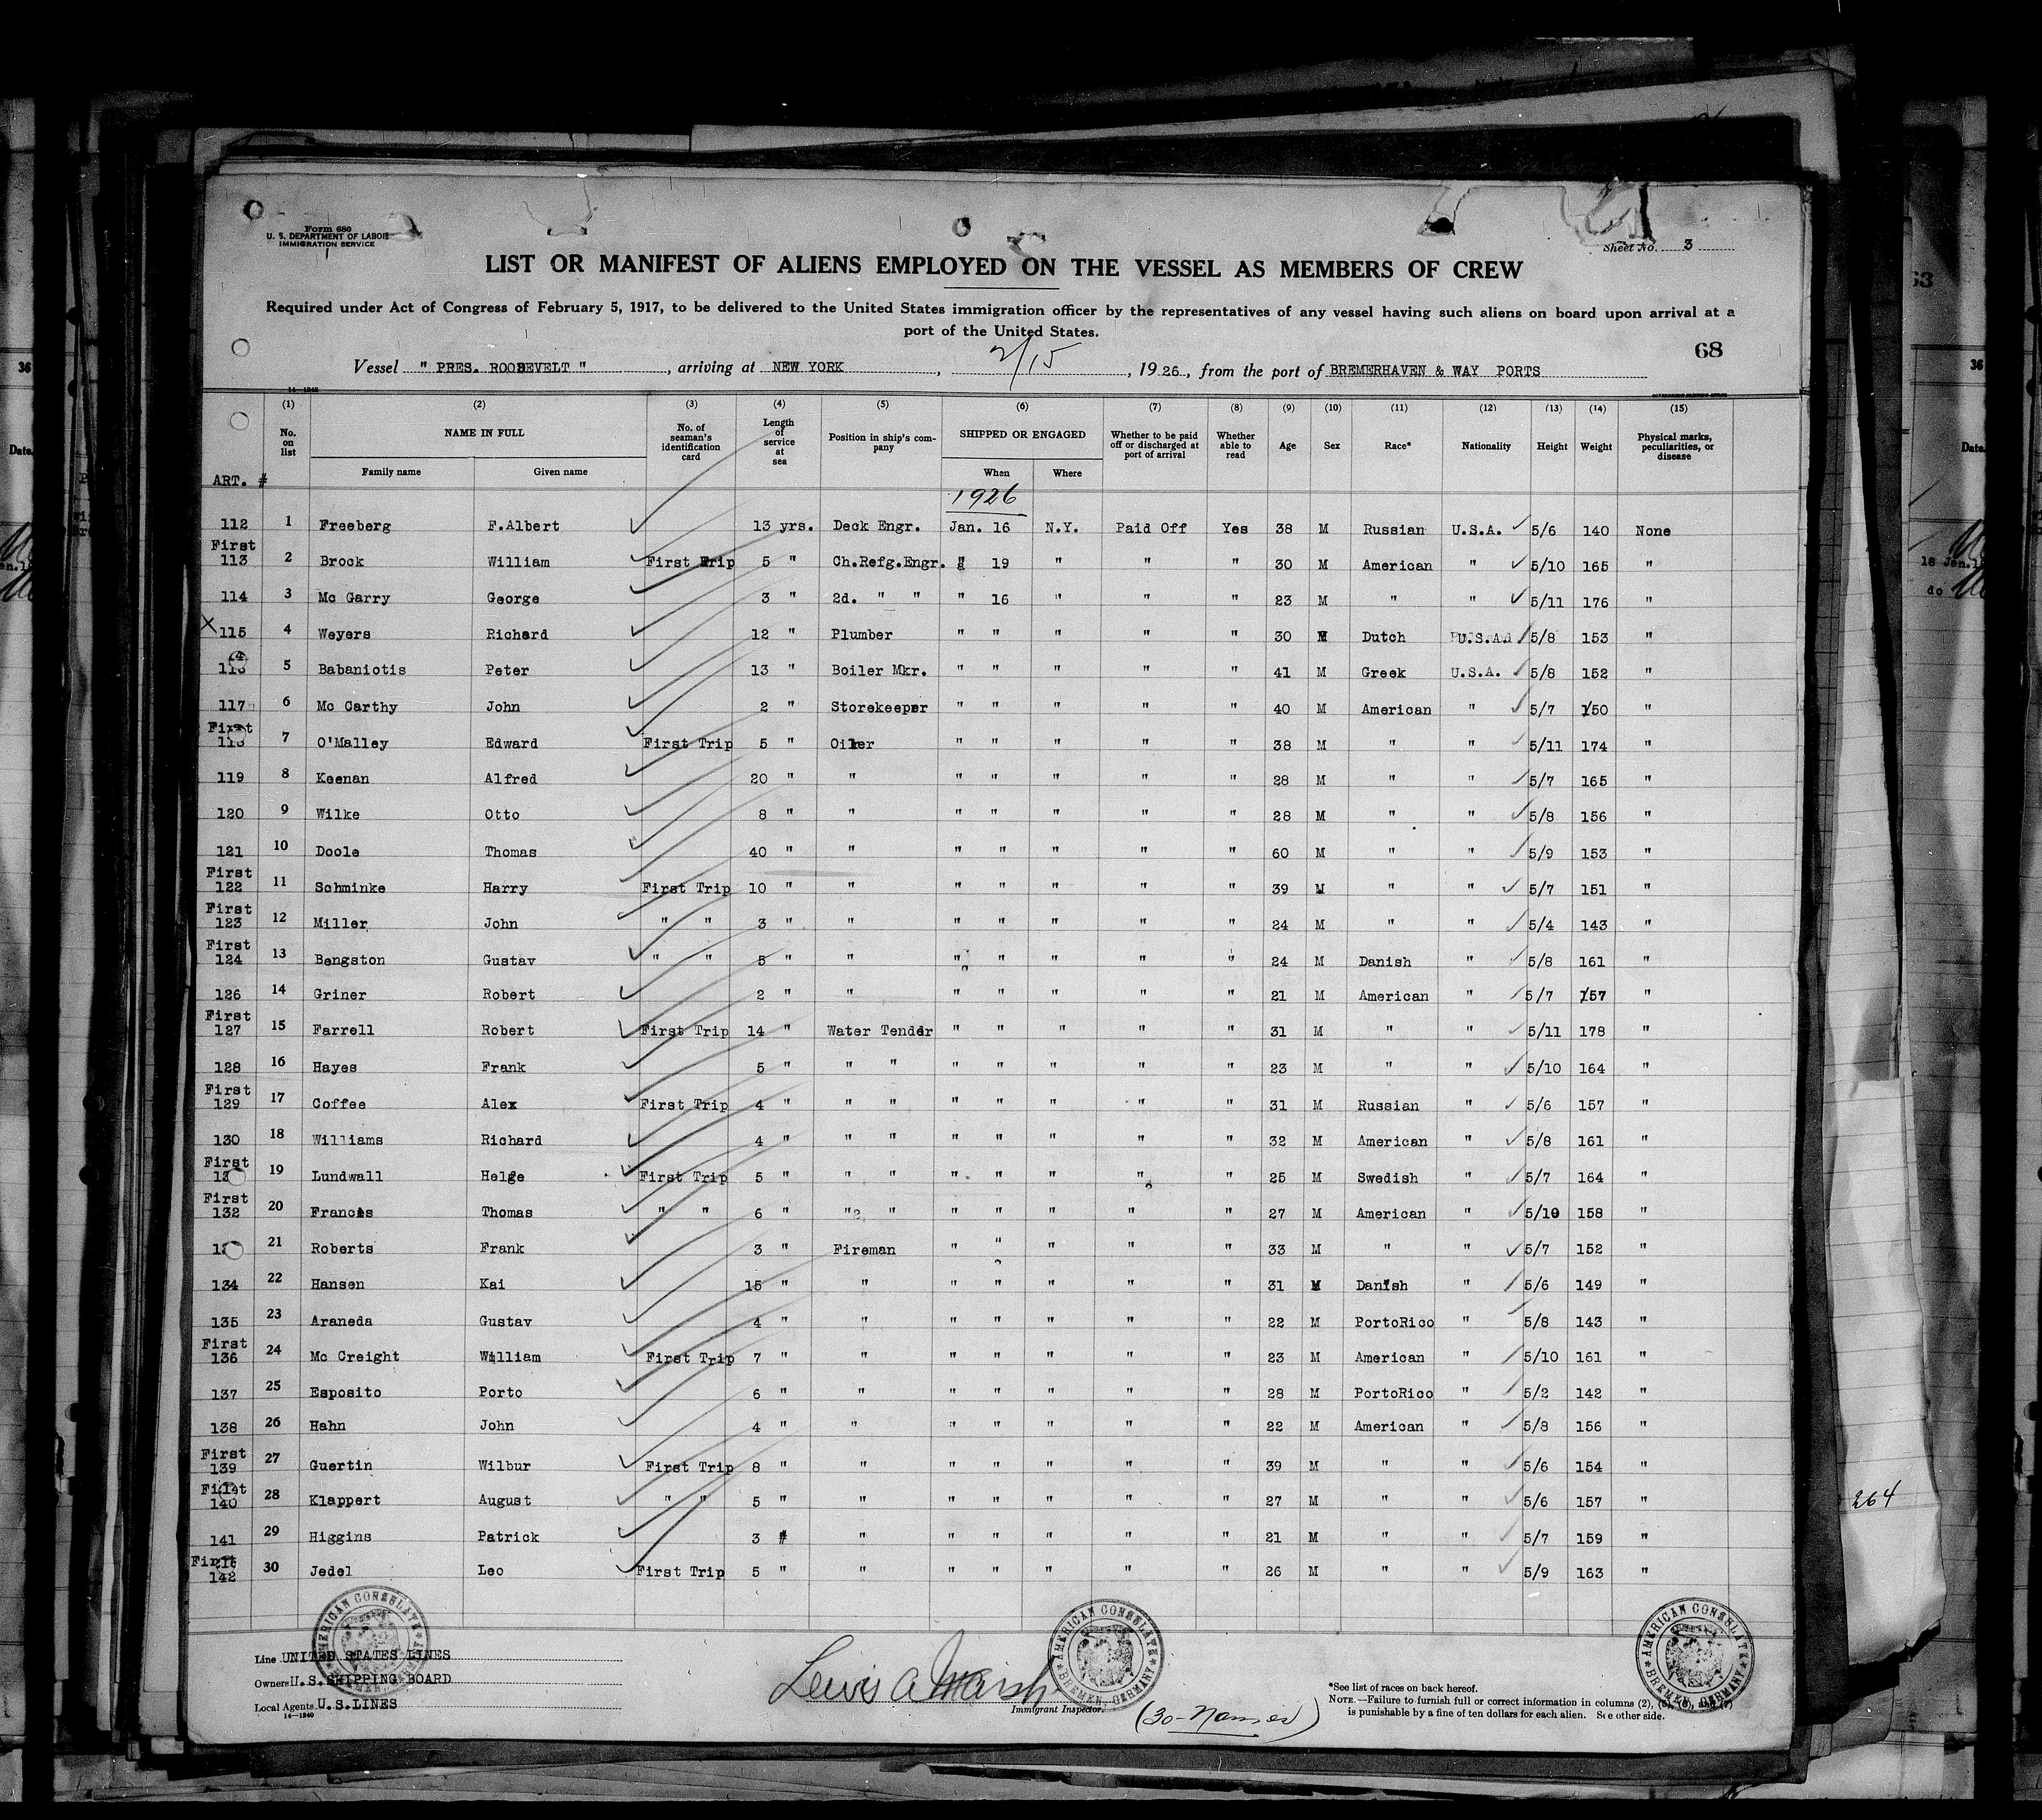 Form 680
U. S. DEPARTMENT OF LABOR
IMMIGRATION SERVICE
Sheet No. 3
LIST OR MANIFEST OF ALIENS EMPLOYED ON THE VESSEL AS MEMBERS OF CREW
Required under Act of Congress of February 5, 1917, to be delivered to the United States immigration officer by the representatives of any vessel having such aliens on board upon arrival at a
port of the United States.
68
Vessel " PRES. ROOSEVELT ", arriving at NEW YORK, 2/15, 1926, from the port of BREMERHAVEN & WAY PORTS
14—1240
(1) (2) (3) (4) (5) (6) (7) (8) (9) (10) (11) (12) (13) (14) (15)
No. on list NAME IN FULL Family name Given name No. of seaman's identification card Length of service at sea Position in ship's company SHIPPED OR ENGAGED When Where Whether to be paid off or discharged at port of arrival Whether able to read Age Sex Race* Nationality Height Weight Physical marks, peculiarities, or disease
ART. #
1926
112 1 Freeberg F.Albert 13 yrs. Deck Engr. Jan. 16 N.Y. Paid Off Yes 38 M Russian U.S.A. 5/6 140 None
First 113 2 Brock William First Trip 5 " Ch.Refg.Engr. " 19 " " " 30 M American " 5/10 165 "
114 3 Mc Garry George 3 " 2d. " " " 16 " " " 23 M " " 5/11 176 "
X 115 4 Weyers Richard 12 " Plumber " " " " " 30 M Dutch U.S.A. 5/8 153 "
116 5 Babaniotis Peter 13 " Boiler Mkr. " " " " " 41 M Greek U.S.A. 5/8 152 "
117 6 Mc Carthy John 2 " Storekeeper " " " " " 40 M American " 5/7 150 "
First 118 7 O'Malley Edward First Trip 5 " Oiler " " " " " 38 M " " 5/11 174 "
119 8 Keenan Alfred 20 " " " " " " " 28 M " " 5/7 165 "
120 9 Wilke Otto 8 " " " " " " " 28 M " " 5/8 156 "
121 10 Doole Thomas 40 " " " " " " " 60 M " " 5/9 153 "
First 122 11 Schminke Harry First Trip 10 " " " " " " " 39 M " " 5/7 151 "
First 123 12 Miller John " " 3 " " " " " " " 24 M " " 5/4 143 "
First 124 13 Bengston Gustav " " 5 " " " " " " " 24 M Danish " 5/8 161 "
126 14 Griner Robert 2 " " " " " " " 21 M American " 5/7 157 "
First 127 15 Farrell Robert First Trip 14 " Water Tender " " " " " 31 M " " 5/11 178 "
128 16 Hayes Frank 5 " " " " " " " " 23 M " " 5/10 164 "
First 129 17 Coffee Alex First Trip 4 " " " " " " " " 31 M Russian " 5/6 157 "
130 18 Williams Richard 4 " " " " " " " " 32 M American " 5/8 161 "
First 19 Lundwall Helge First Trip 5 " " " " " " " " 25 M Swedish " 5/7 164 "
First 132 20 Francis Thomas " " 6 " " " " " " " " 27 M American " 5/10 158 "
21 Roberts Frank 3 " Fireman " " " " " 33 M " " 5/7 152 "
134 22 Hansen Kai 15 " " " " " " " 31 M Danish " 5/6 149 "
135 23 Araneda Gustav 4 " " " " " " " 22 M PortoRico " 5/8 143 "
First 136 24 Mc Creight William First Trip 7 " " " " " " " 23 M American " 5/10 161 "
137 25 Esposito Porto 6 " " " " " " " 28 M PortoRico " 5/2 142 "
138 26 Hahn John 4 " " " " " " " 22 M American " 5/8 156 "
First 139 27 Guertin Wilbur First Trip 8 " " " " " " " 39 M " " 5/6 154 "
First 140 28 Klappert August " " 5 " " " " " " " 27 M " " 5/6 157 "
141 29 Higgins Patrick 3 " " " " " " " 21 M " " 5/7 159 "
First 142 30 Jedel Leo First Trip 5 " " " " " " " 26 M " " 5/9 163 "
Line UNITED STATES LINES
Owners U.S.SHIPPING BOARD
Local Agents U.S.LINES
14—1240
AMERICAN CONSULATE BREMEN, GERMANY
Lewis A Marsh
Immigrant Inspector.
AMERICAN CONSULATE BREMEN, GERMANY
(30-Names)
*See list of races on back hereof.
NOTE.—Failure to furnish full or correct information in columns (2), (5), (6), and (7)
is punishable by a fine of ten dollars for each alien. See other side.
AMERICAN CONSULATE BREMEN, GERMANY
264
36
Date.
53
36
Date.
18 Jan.
do